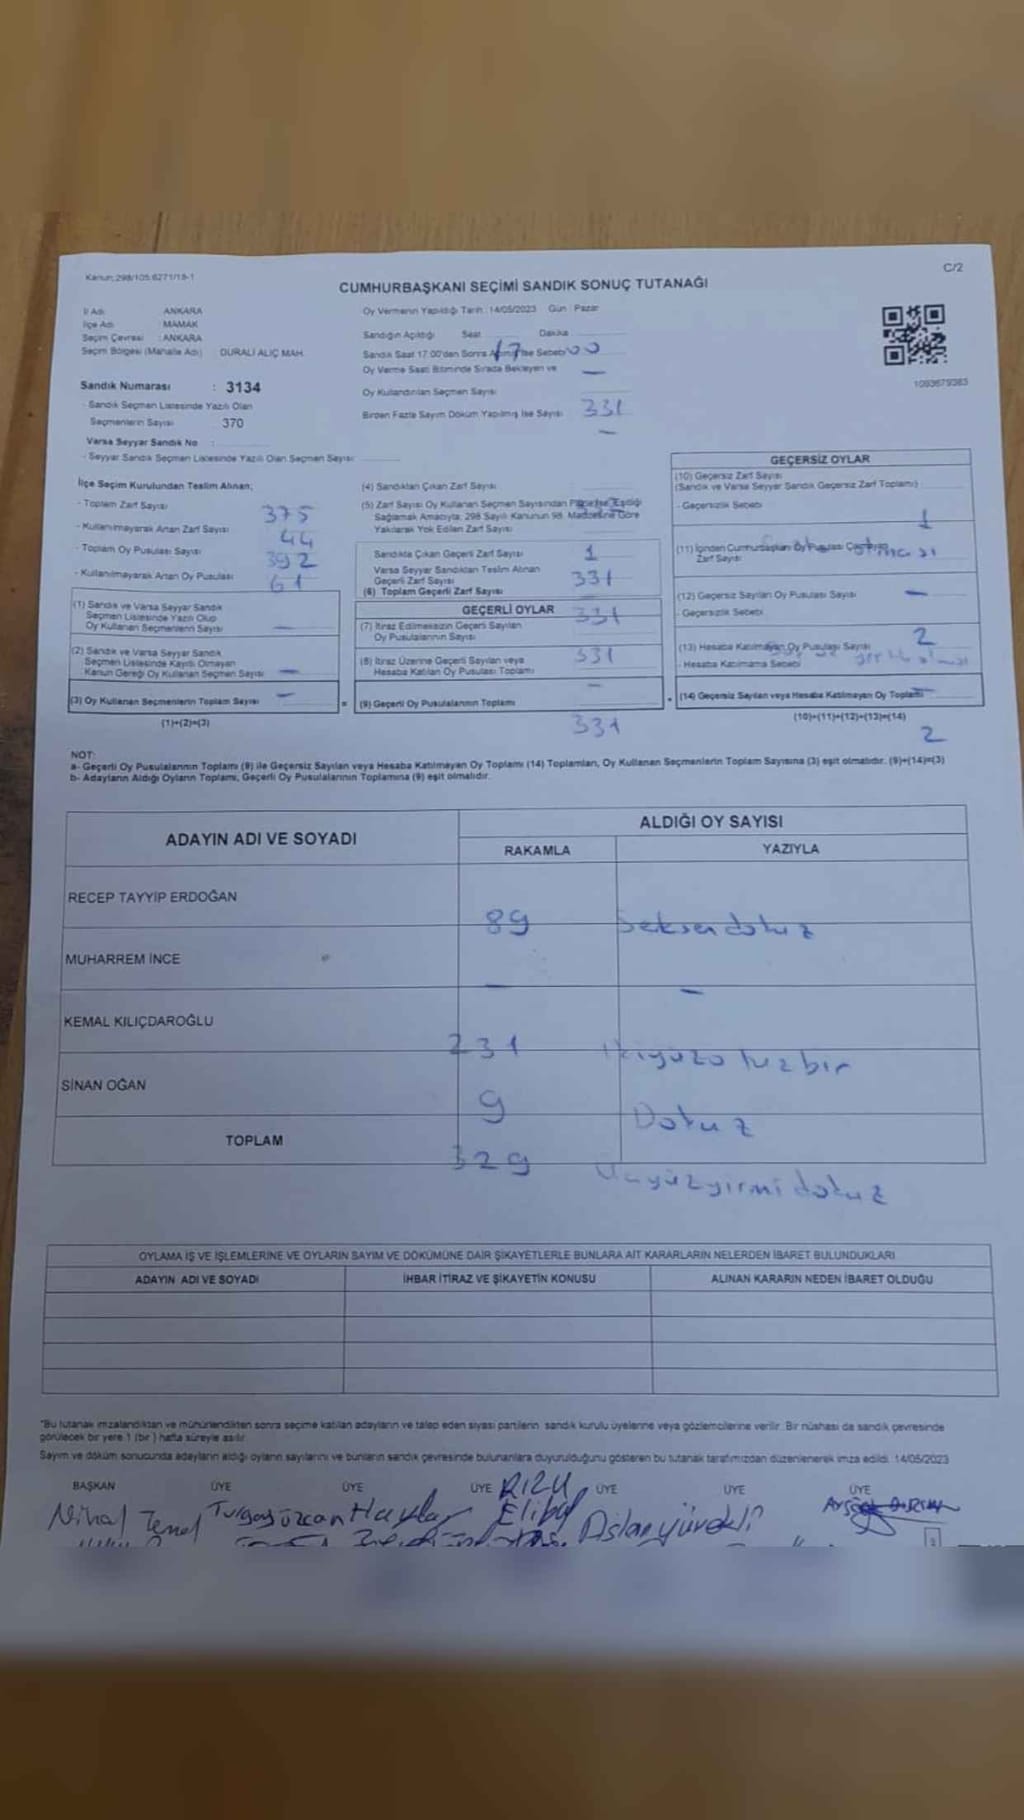 Kanun: 298/105,6271/18-1
C/2
CUMHURBAŞKANI SEÇİMİ SANDIK SONUÇ TUTANAĞI
İl Adı : ANKARA
İlçe Adı : MAMAK
Seçim Çevresi : ANKARA
Seçim Bölgesi (Mahalle Adı) : DURALİ ALIÇ MAH.
Sandık Numarası : 3134
- Sandık Seçmen Listesinde Yazılı Olan
Seçmenlerin Sayısı 370
Varsa Seyyar Sandık No :
- Seyyar Sandık Seçmen Listesinde Yazılı Olan Seçmen Sayısı
Oy Vermenin Yapıldığı Tarih : 14/05/2023 Gün : Pazar
Sandığın Açıldığı Saat Dakika
Sandık Saat 17:00'den Sonra Açılmış İse Sebebi
17 00
Oy Verme Saati Bitiminde Sırada Bekleyen ve
—
Oy Kullandırılan Seçmen Sayısı
Birden Fazla Sayım Döküm Yapılmış İse Sayısı 331
—
1093679383
İlçe Seçim Kurulundan Teslim Alınan;
- Toplam Zarf Sayısı 375
- Kullanılmayarak Artan Zarf Sayısı 44
- Toplam Oy Pusulası Sayısı 392
- Kullanılmayarak Artan Oy Pusulası 61
(1) Sandık ve Varsa Seyyar Sandık
Seçmen Listesinde Yazılı Olup
Oy Kullanan Seçmenlerin Sayısı —
(2) Sandık ve Varsa Seyyar Sandık
Seçmen Listesinde Kayıtlı Olmayan
Kanun Gereği Oy Kullanan Seçmen Sayısı —
(3) Oy Kullanan Seçmenlerin Toplam Sayısı —
=
(1)+(2)=(3)
(4) Sandıktan Çıkan Zarf Sayısı
(5) Zarf Sayısı Oy Kullanan Seçmen Sayısından Fazla İse, Eşitliği
Sağlamak Amacıyla, 298 Sayılı Kanunun 98. Maddesine Göre
Yakılarak Yok Edilen Zarf Sayısı
Sandıkta Çıkan Geçerli Zarf Sayısı 1
Varsa Seyyar Sandıktan Teslim Alınan
Geçerli Zarf Sayısı 331
(6) Toplam Geçerli Zarf Sayısı
GEÇERLİ OYLAR
331
(7) İtiraz Edilmeksizin Geçerli Sayılan
Oy Pusulalarının Sayısı
331
(8) İtiraz Üzerine Geçerli Sayılan veya
Hesaba Katılan Oy Pusulası Toplamı
—
(9) Geçerli Oy Pusulalarının Toplamı
331
+
GEÇERSİZ OYLAR
(10) Geçersiz Zarf Sayısı
(Sandık ve Varsa Seyyar Sandık Geçersiz Zarf Toplamı)
- Geçersizlik Sebebi
1
(11) İçinden Cumhurbaşkanı Oy Pusulası Çıkmayan
Zarf Sayısı
(12) Geçersiz Sayılan Oy Pusulası Sayısı —
- Geçersizlik Sebebi
2
(13) Hesaba Katılmayan Oy Pusulası Sayısı
- Hesaba Katılmama Sebebi
(14) Geçersiz Sayılan veya Hesaba Katılmayan Oy Toplamı —
(10)+(11)+(12)+(13)=(14)
2
NOT:
a- Geçerli Oy Pusulalarının Toplamı (9) ile Geçersiz Sayılan veya Hesaba Katılmayan Oy Toplamı (14) Toplamları, Oy Kullanan Seçmenlerin Toplam Sayısına (3) eşit olmalıdır. (9)+(14)=(3)
b- Adayların Aldığı Oyların Toplamı, Geçerli Oy Pusulalarının Toplamına (9) eşit olmalıdır.
ADAYIN ADI VE SOYADI
ALDIĞI OY SAYISI
RAKAMLA YAZIYLA
RECEP TAYYİP ERDOĞAN
89 Seksendokuz
MUHARREM İNCE
— —
KEMAL KILIÇDAROĞLU
231 İkiyüzotuzbir
SİNAN OĞAN
9 Dokuz
TOPLAM
329 Üçyüzyirmidokuz
OYLAMA İŞ VE İŞLEMLERİNE VE OYLARIN SAYIM VE DÖKÜMÜNE DAİR ŞİKAYETLERLE BUNLARA AİT KARARLARIN NELERDEN İBARET BULUNDUKLARI
ADAYIN ADI VE SOYADI İHBAR İTİRAZ VE ŞİKAYETİN KONUSU ALINAN KARARIN NEDEN İBARET OLDUĞU
"Bu tutanak imzalandıktan ve mühürlendikten sonra seçime katılan adayların ve talep eden siyasi partilerin sandık kurulu üyelerine veya gözlemcilerine verilir. Bir nüshası da sandık çevresinde
görülecek bir yere 1 (bir ) hafta süreyle asılır.
Sayım ve döküm sonucunda adayların aldığı oyların sayılarını ve bunların sandık çevresinde bulunanlara duyurulduğunu gösteren bu tutanak tarafımızdan düzenlenerek imza edildi. 14/05/2023
BAŞKAN ÜYE ÜYE ÜYE ÜYE ÜYE ÜYE
Nihal Temel Turgay Özcan Elibol Aslanyürekli